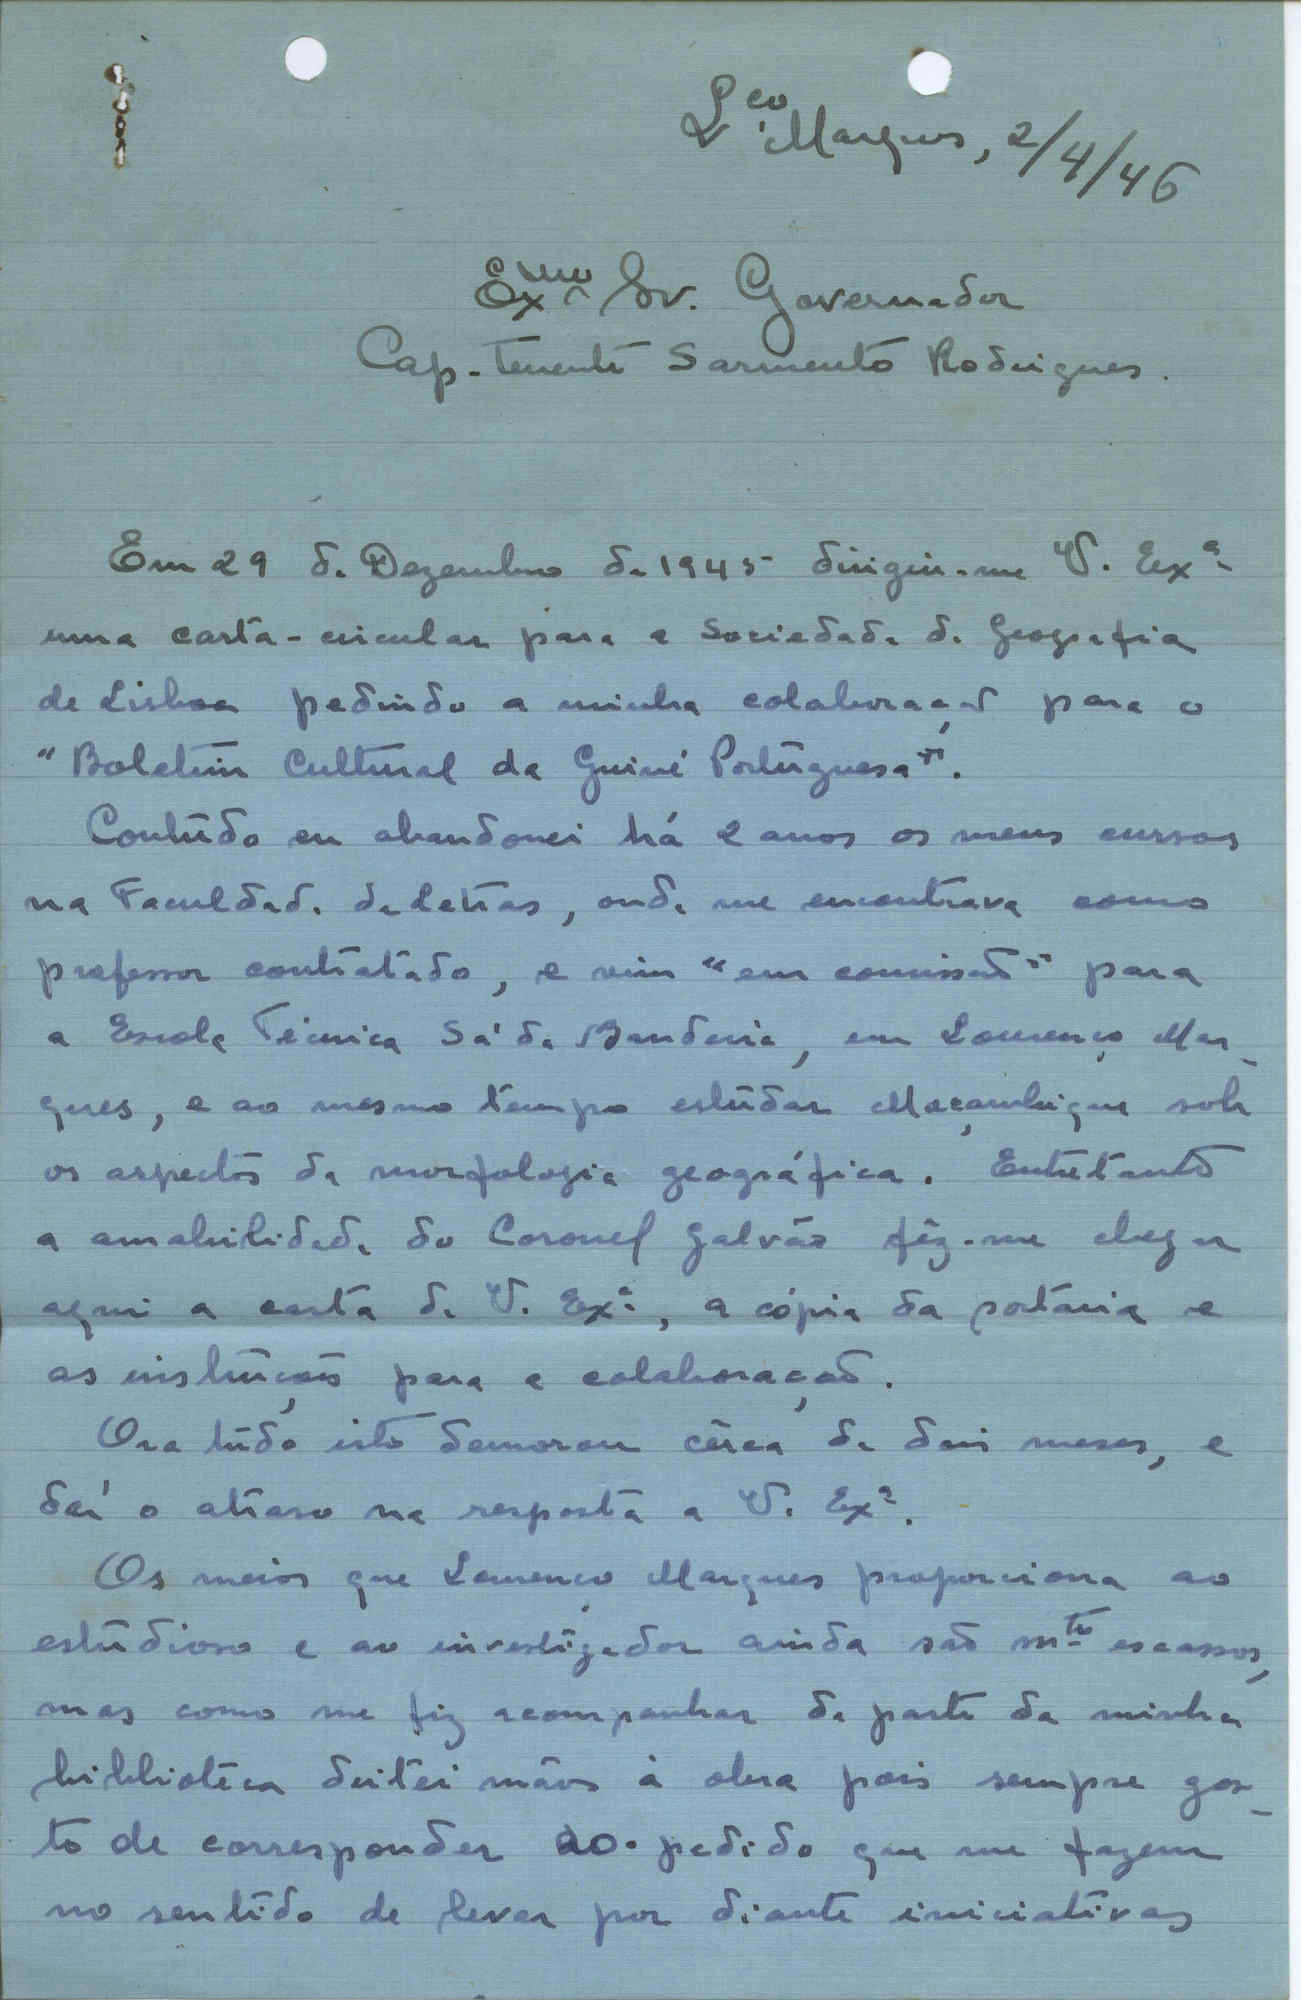 Lço Marques, 2/4/46
Exmo Sr. Governador
Cap-Tenente Sarmento Rodrigues.
Em 29 de Dezembro de 1945 dirigiu-me V. Exª
uma carta-circular para a Sociedade de Geografia
de Lisboa pedindo a minha colaboração para o
"Boletim Cultural da Guiné Portuguesa".
Contudo eu abandonei há 2 anos os meus cursos
na Faculdade de Letras, onde me encontrava como
professor contratado, e vim "em comissão" para
a Escola Técnica Sá da Bandeira, em Lourenço Mar-
ques, e ao mesmo tempo estudar Moçambique sob
os aspectos da morfologia geográfica. Entretanto
a amabilidade do Coronel Galvão fêz-me chegar
aqui a carta de V. Exª, a cópia da portaria e
as instruções para a colaboração.
Ora tudo isto demorou cêrca de dois meses, e
daí o atraso na resposta a V. Exª.
Os meios que Lourenço Marques proporciona ao
estudioso e ao investigador ainda são mto escassos,
mas como me fiz acompanhar de parte da minha
biblioteca deitei mãos à obra pois sempre gos-
to de corresponder ao pedido que me fazem
no sentido de levar por diante iniciativas